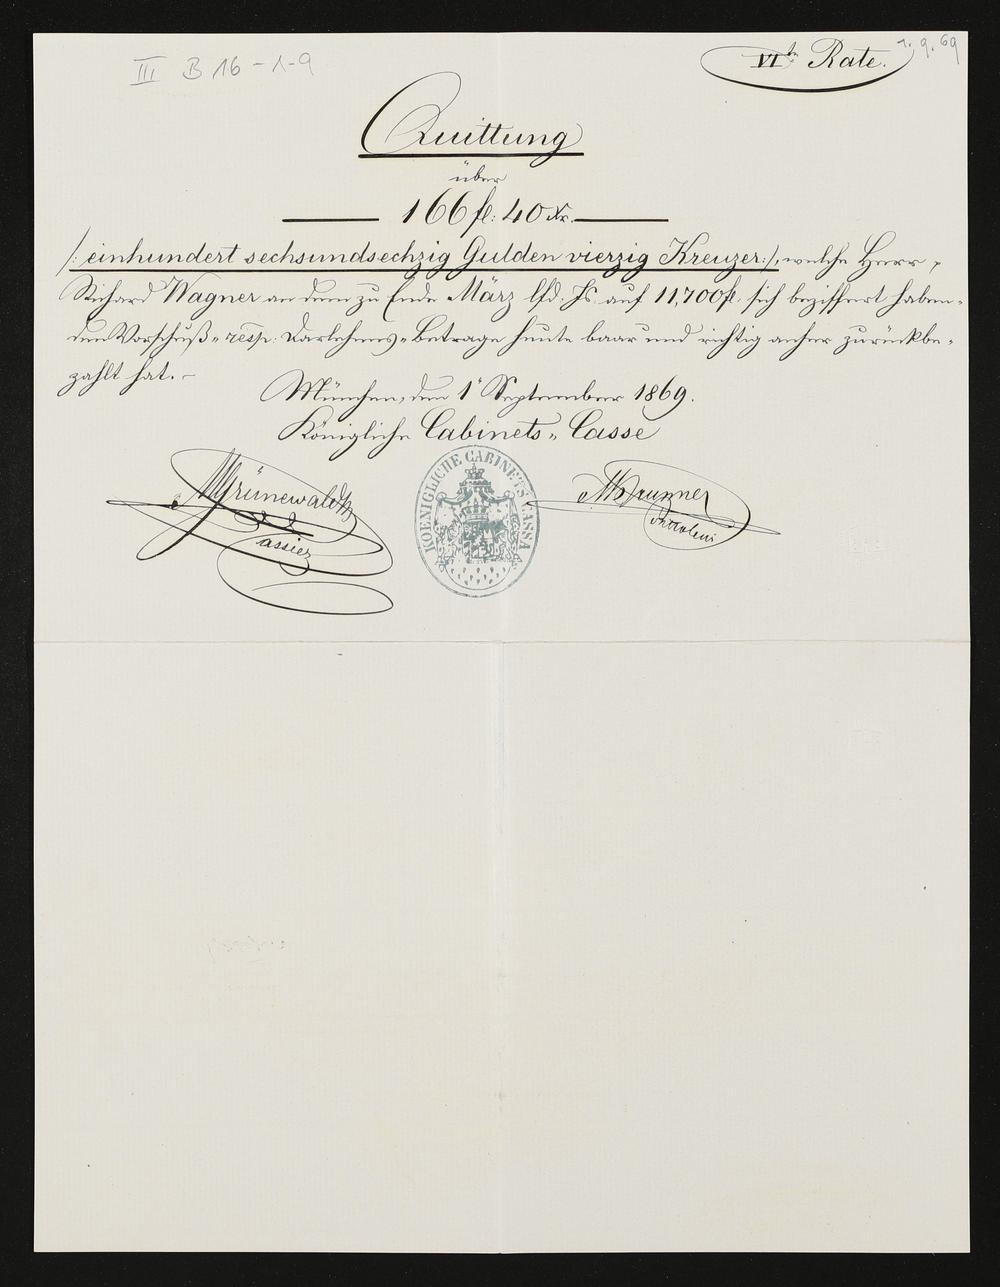 III B 16-1-9
1.9.69
VIte Rate.
Quittung
über
166 fl: 40 Xr.
/: einhundert sechsundsechzig Gulden vierzig Kreuzer:/, welche Herr
Richard Wagner an dem zu Ende März lfd. Js. auf 11,700 fl. sich beziffert haben-
den Vorschuß- resp: Darlehens-Betrage heute baar und richtig anher zurückbe-
zahlt hat.-
München, den 1 September 1869.
Königliche Cabinets-Casse
KOENIGLICHE CABINETS CASSA
Grünewald
Cassier
Brunner